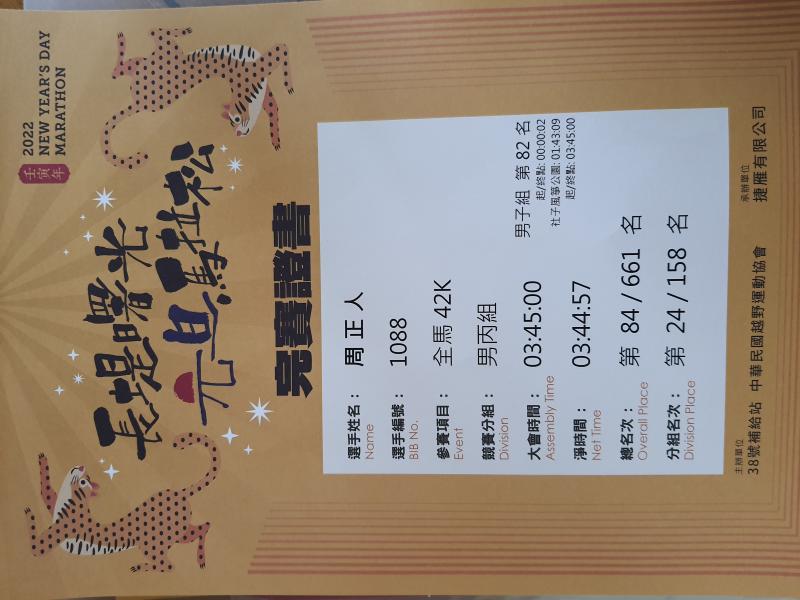 2022
NEW YEAR'S DAY
MARATHON
壬寅年
長堤曙光
元旦馬拉松
完賽證書
選手姓名： 周正人
Name
選手編號： 1088
BIB No.
參賽項目： 全馬 42K
Event
競賽分組： 男丙組
Division
男子組 第 82 名
大會時間： 03:45:00
Assembly Time
起/終點: 00:00:02
社子風箏公園: 01:43:09
起/終點: 03:45:00
淨時間： 03:44:57
Net Time
總名次： 第 84 / 661 名
Overall Place
分組名次： 第 24 / 158 名
Division Place
主辦單位
38號補給站 中華民國越野運動協會
承辦單位
捷雁有限公司